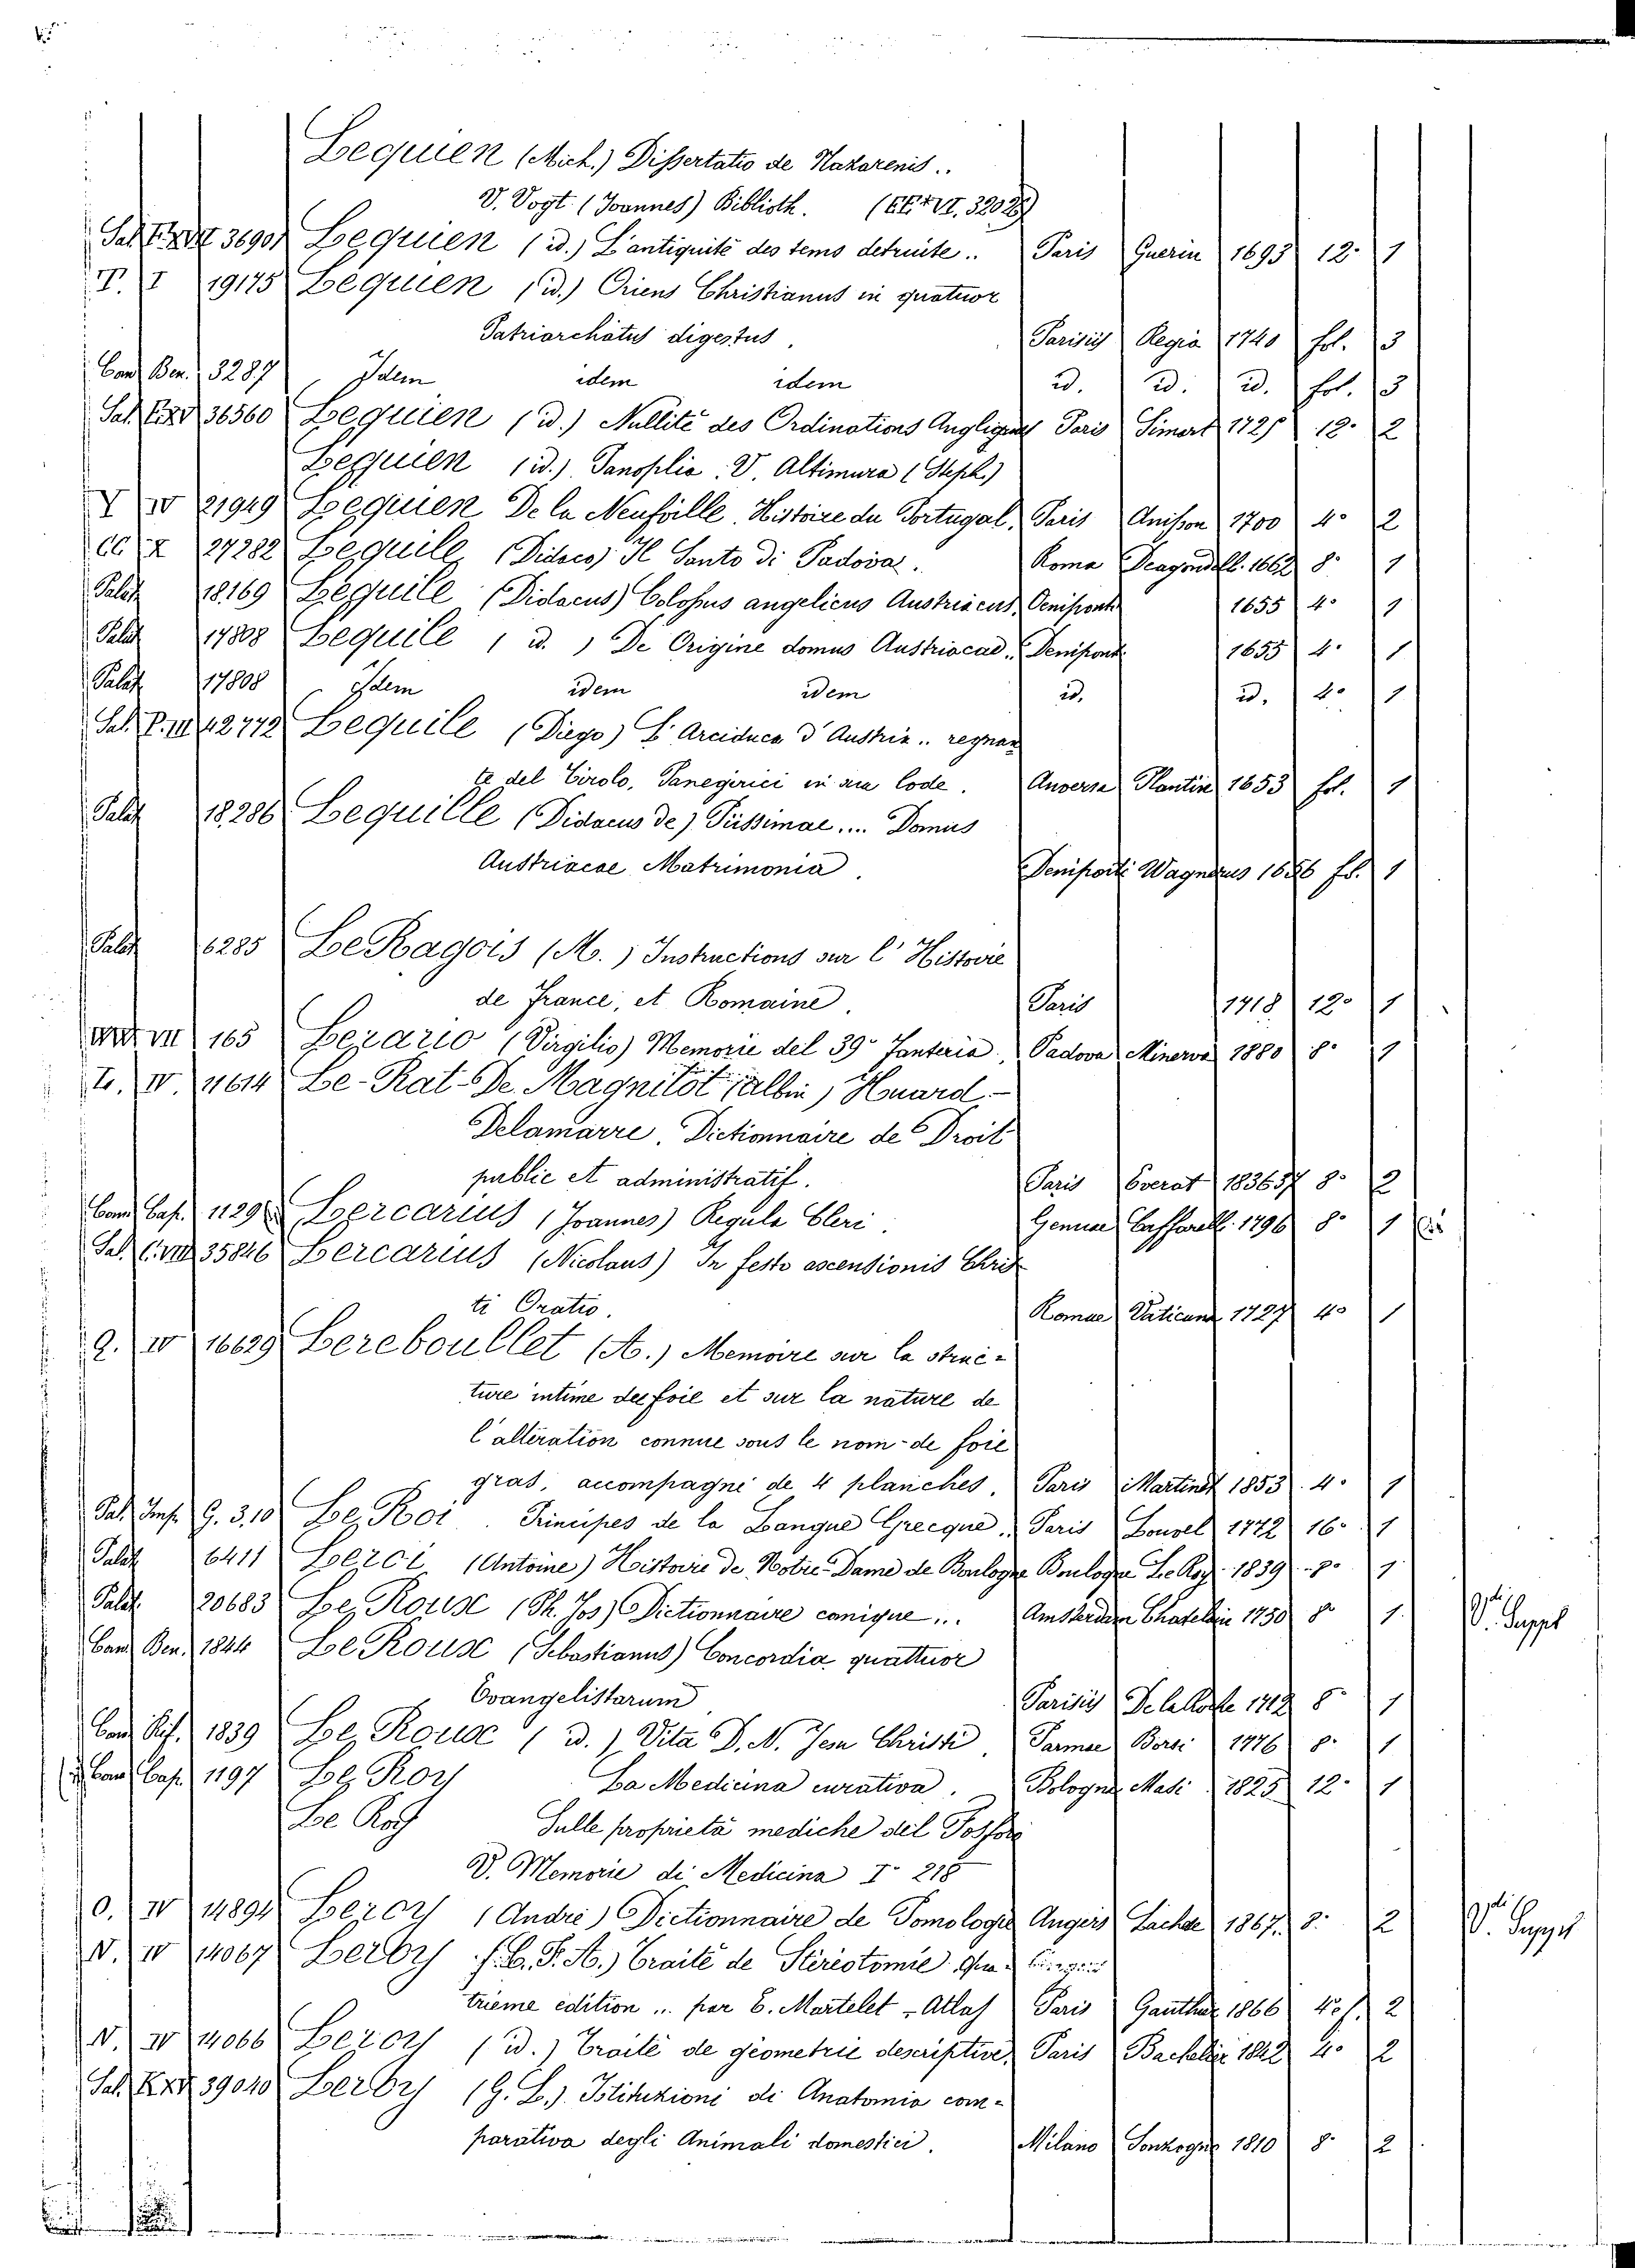 Lequien (Mich.) Dissertatio de Nazarenis..
V. Vogt (Joannes) Biblioth.
36901 Lequien (id.) L'antiquité des tems detruite.. Paris Guerin 1693 12° 1
T. I 19175 Lequien (id.) Oriens Christianus in quatuor
Patriarchatus digestus. Parisiis Regia 1740 fol. 3
Ben. 3287 Idem idem idem id. id. id. fol. 3
36560 Lequien (id.) Nullité des Ordinations Paris Simart 12° 2
Lequien (id.) Panoplia. V. Altimura (Steph.)
Y IV 21949 Lequien De la Neufville. Histoire du Portugal. Paris Anisson 1700 4° 2
CC X 27282 Lequile (Didaco) Il Santo di Padova. Roma 1662 8° 1
Palat 18169 Lequile (Didacus) Colossus angelicus Austriacus, Oenipont 1655 4° 1
Palat 17808 Lequile (id.) De Origine domus Austriacae.. Oenipont 1655 4° 1
Palat 17808 Idem idem idem id. id. 4° 1
42772 Lequile (Diego) L'Arciduca d'Austria.. regnan
te del Tirolo, Panegirici in sua lode. Anversa Plantin 1653 fol. 1
Palat 18286 Lequille (Didacus de) Piissimae.... Domus
Austriacae Matrimonia. Oeniponti Wagnerus fol. 1
Palat 6285 Le Ragois (M.) Instructions sur l'Histoire
de France, et Romaine. Paris 1718 12° 1
VII 165 Lerario (Virgilio) Memorie del 39° Fanteria. Padova Minerva 1880 8° 1
L. IV 11614 Le-Rat-De Magnitot (Albin) Huard-
Delamarre. Dictionnaire de Droit
public et administratif. Paris Everat 1836 37 8° 2
Cap. Lercarius (Joannes) Regula Cleri. Genuae Caffarell. 1796 8° 1
35846 Lercarius (Nicolaus) In festo ascensionis Chris
ti Oratio. Romae Vaticana 1727 4° 1
Q. IV 16629 Lereboullet (A.) Memoire sur la struc-
ture intime du foie et sur la nature de
l'altération connue sous le nom de foie
gras, accompagné de 4 planches. Paris Martinet 1853. 4° 1
G. 3.10 Le Roi. Principes de la Langue Grecque. Paris 1772 16° 1
Palat 6411 Leroi (Antoine) Histoire de Notre-Dame de Boulogne Boulogne Le Roy 1839 8° 1
Palat. 20683 Le Roux (Ph. Jos) Dictionnaire comique... Amsterdam Chatelain 1750 8° 1
V. Suppl
Ben. 1844 Le Roux (Sebastianus) Concordia quattuor
Evangelistarum Parisiis 1712 8° 1
1839 Le Roux (id.) Vita D. N. Jesu Christi. Parmae Borsi 1776 8° 1
Cap. 1197 Le Roy La Medicina curativa. Bologna Masi 1825 12° 1
Le Roy Sulle proprietà mediche del
V. Memorie di Medicina I° 218
O. IV Leroy (André) Dictionnaire de Pomologie Angers Lachese 1867. 8° 2
V. Suppl
N. IV 14067 Leroy (C. F. A.) Traité de Stéréotomie
trième edition... par E. Martelet - Atlas Paris Gauthier 1866 4° f. 2
N. IV 14066 Leroy (id.) Traité de géometrie descriptive. Paris Bachelier 1842 4° 2
39040 Leroy (G. L.) Istituzioni di Anatomia com-
parativa degli Animali domestici. Milano Sonzogno 1810 8° 2